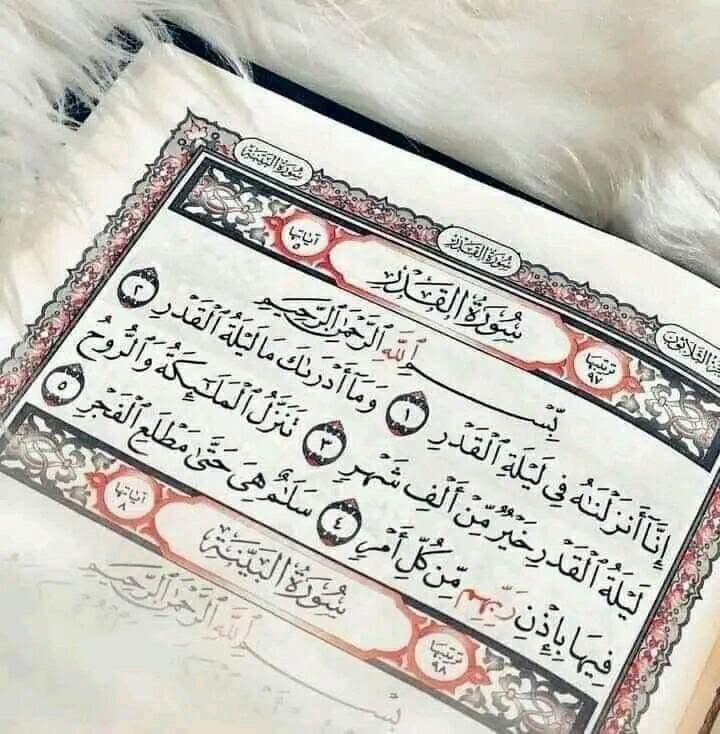 الثلاثون
سُورَةُ القَدْرِ
سُورَةُ البَيِّنَةِ
ترتيبها ٩٧
سُورَةُ القَدْرِ
آياتها ٥
بِسْمِ ٱللَّهِ ٱلرَّحْمَٰنِ ٱلرَّحِيمِ
إِنَّآ أَنزَلْنَٰهُ فِى لَيْلَةِ ٱلْقَدْرِ ١ وَمَآ أَدْرَىٰكَ مَا لَيْلَةُ ٱلْقَدْرِ ٢
لَيْلَةُ ٱلْقَدْرِ خَيْرٌ مِّنْ أَلْفِ شَهْرٍ ٣ تَنَزَّلُ ٱلْمَلَٰٓئِكَةُ وَٱلرُّوحُ
فِيهَا بِإِذْنِ رَبِّهِم مِّن كُلِّ أَمْرٍ ٤ سَلَٰمٌ هِىَ حَتَّىٰ مَطْلَعِ ٱلْفَجْرِ ٥
ترتيبها ٩٨
سُورَةُ البَيِّنَةِ
آياتها ٨
بِسْمِ ٱللَّهِ ٱلرَّحْمَٰنِ ٱلرَّحِيمِ